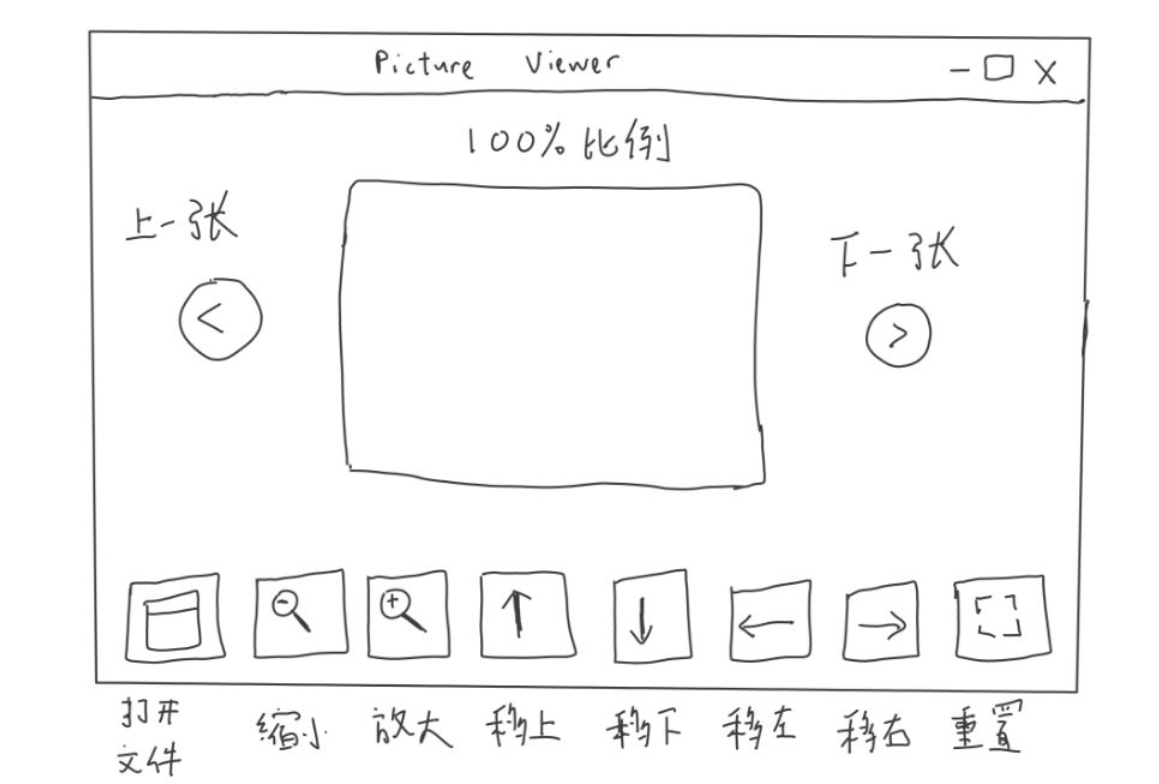 Picture Viewer
100% 比例
上一张
下一张
<
>
打开
文件
缩小
放大
移上
移下
移左
移右
重置